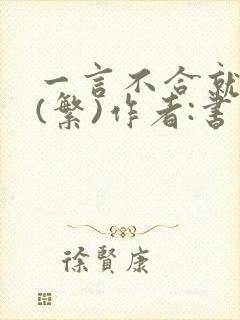 一言不合就
(繁)作者:書
徐賢康